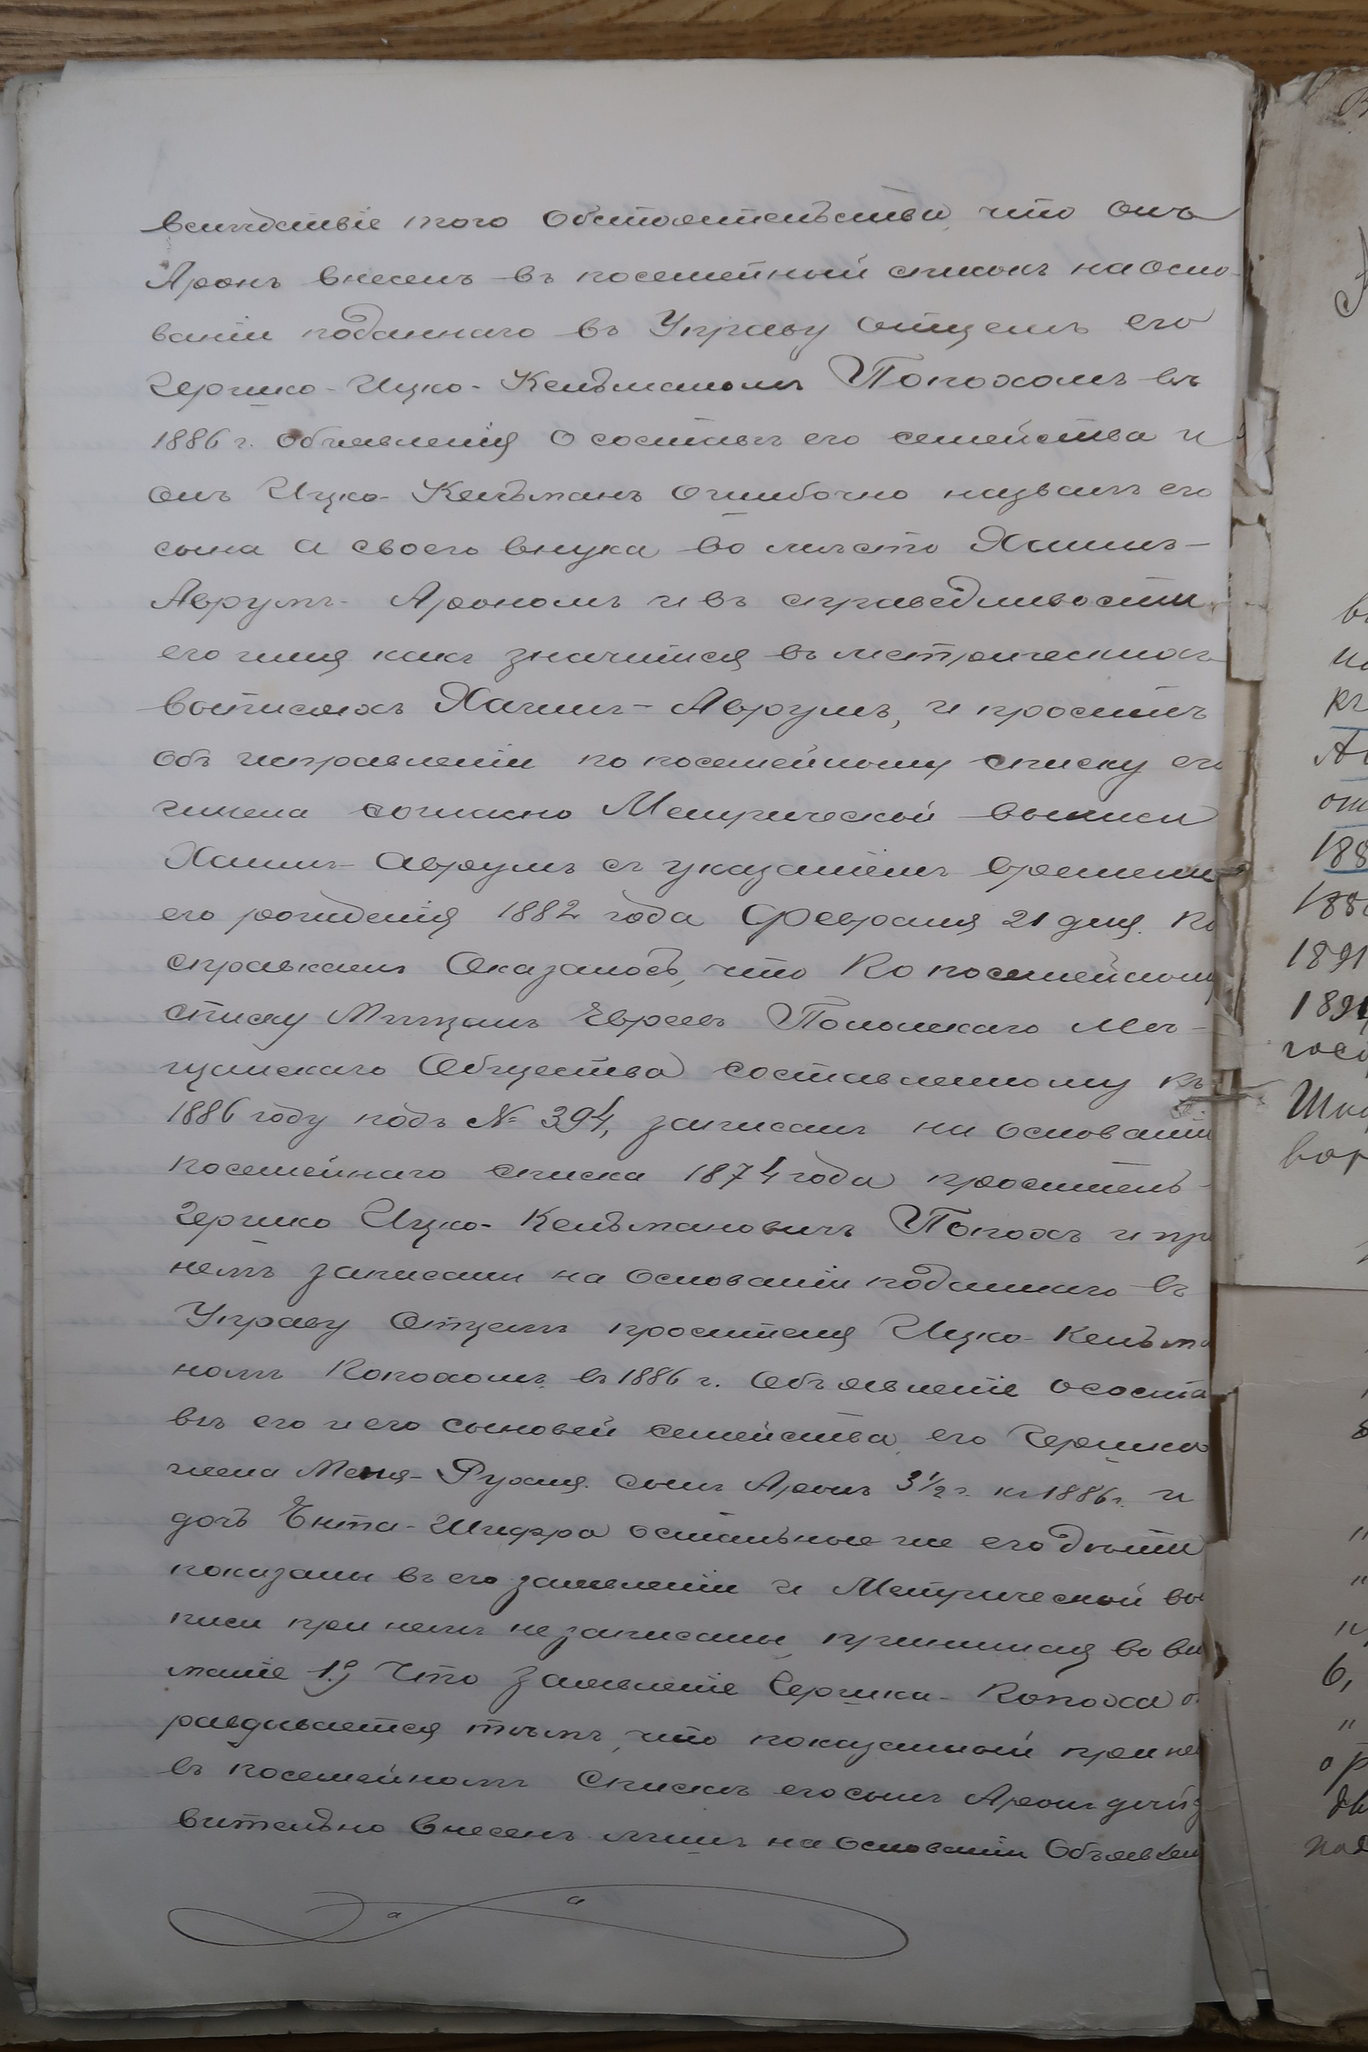 вслѣдствіе того обстоятельства, что онъ
Аронъ внесенъ въ посемейный списокъ на осно-
ваніи поданнаго въ Управу отцемъ его
Гершко-Ицко-Кельманомъ Попохомъ въ
1886 г. объявленія о составѣ его семейства и
онъ Ицко-Кельманъ ошибочно назвалъ его
сына а своего внука во мѣсто Хаимъ-
Аврумъ- Арономъ и въ справедливости
его имя какъ значится въ метрической
выписяхъ Хаимъ-Аврумъ, и проситъ
объ исправленіи по посемейному списку его
имена согласно Метрической выписи
Хаимъ-Аврумъ съ указаніемъ времени
его рожденія 1882 года Февраля 21 дня. По
справкамъ Оказалось, что По посемейному
списку Мѣщанъ Евреевъ Полонскаго Мѣ-
щанскаго Общества составленному къ
1886 году подъ № 394, записанъ на основаніи
посемейнаго списка 1874 года проситель
Гершко Ицко-Кельмановичъ Попохъ и при
немъ записаны на основаніи поданнаго въ
Управу Отцемъ просителя Ицко-Кельма
номъ Попохомъ въ 1886 г. Объявленіе о соста
вѣ его и его сыновей семейства, его Гершка
жена Меня-Рухля сынъ Аронъ 3½ г. къ 1886 г. и
дочь Ента-Шифра остальные же его дѣти
показаны въ его заявленіи и Метрической вы
писи при немъ не записаны, принимая во вни
маніе 1.) Что заявленіе Гершка-Попоха о
равдывается тѣмъ, что показанный при не
въ посемейномъ Спискѣ его сынъ Аронъ дѣйс
вительно внесенъ лишь на основаніи Объявлен